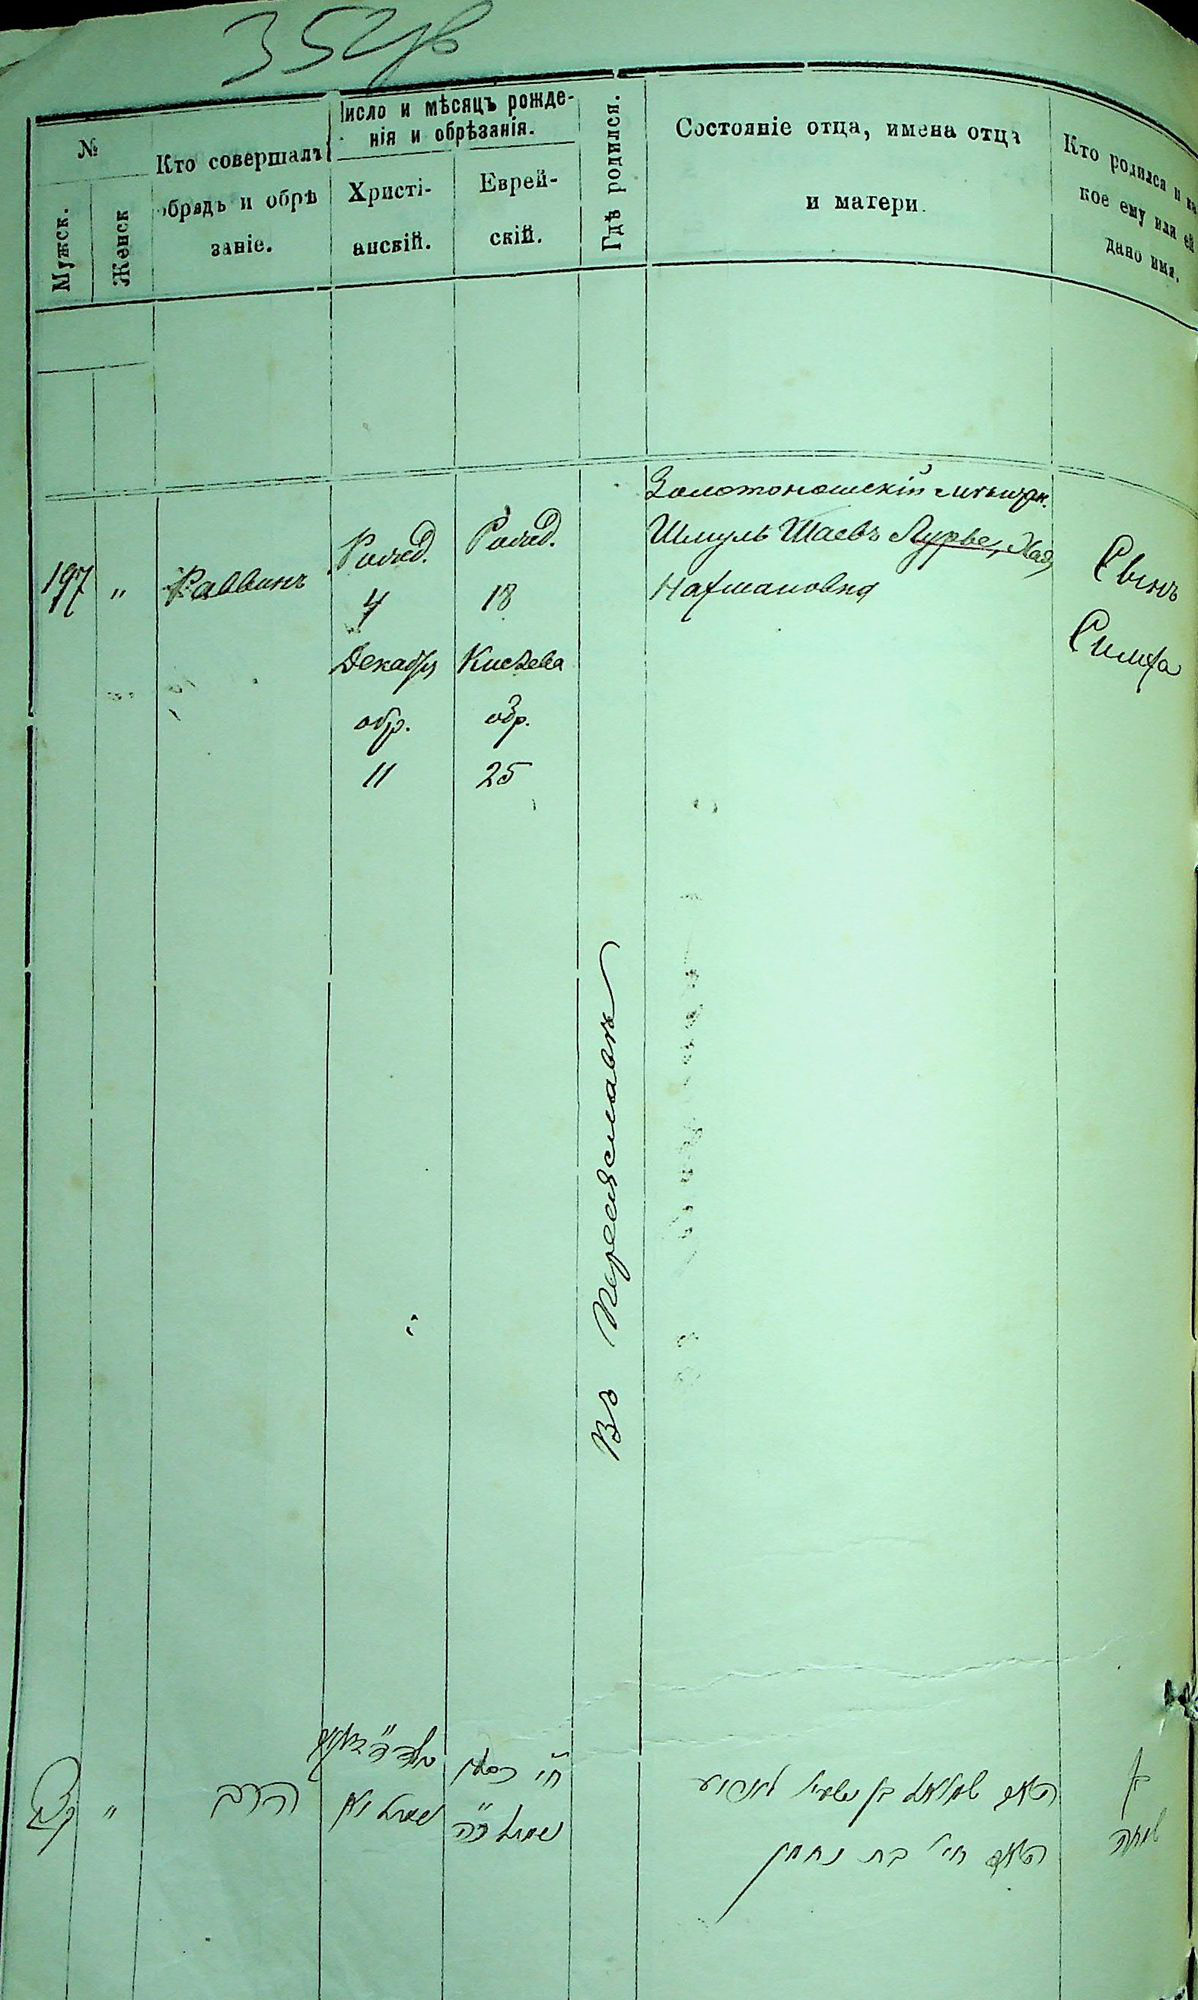 352
№
Мужск.
Женск
Кто совершалъ
обрядъ и обрѣ
заніе.
Число и мѣсяцъ рожде-
нія и обрѣзанія.
Христі-
анскій.
Еврей-
скій.
Гдѣ родился.
Состояніе отца, имена отца
и матери.
Кто родился и ка
кое ему или ей
дано имя.
197
"
Раввинъ
4
Декабр
обр.
11
18
Кислева
обр.
25
Въ Переяславѣ
Золотоношскій мѣщан.
Шмуль Шаевъ Лурье, Хая
Нахмановна
Сынъ
Симха
"
הרב
חי בת נחמן
בן
שמחה